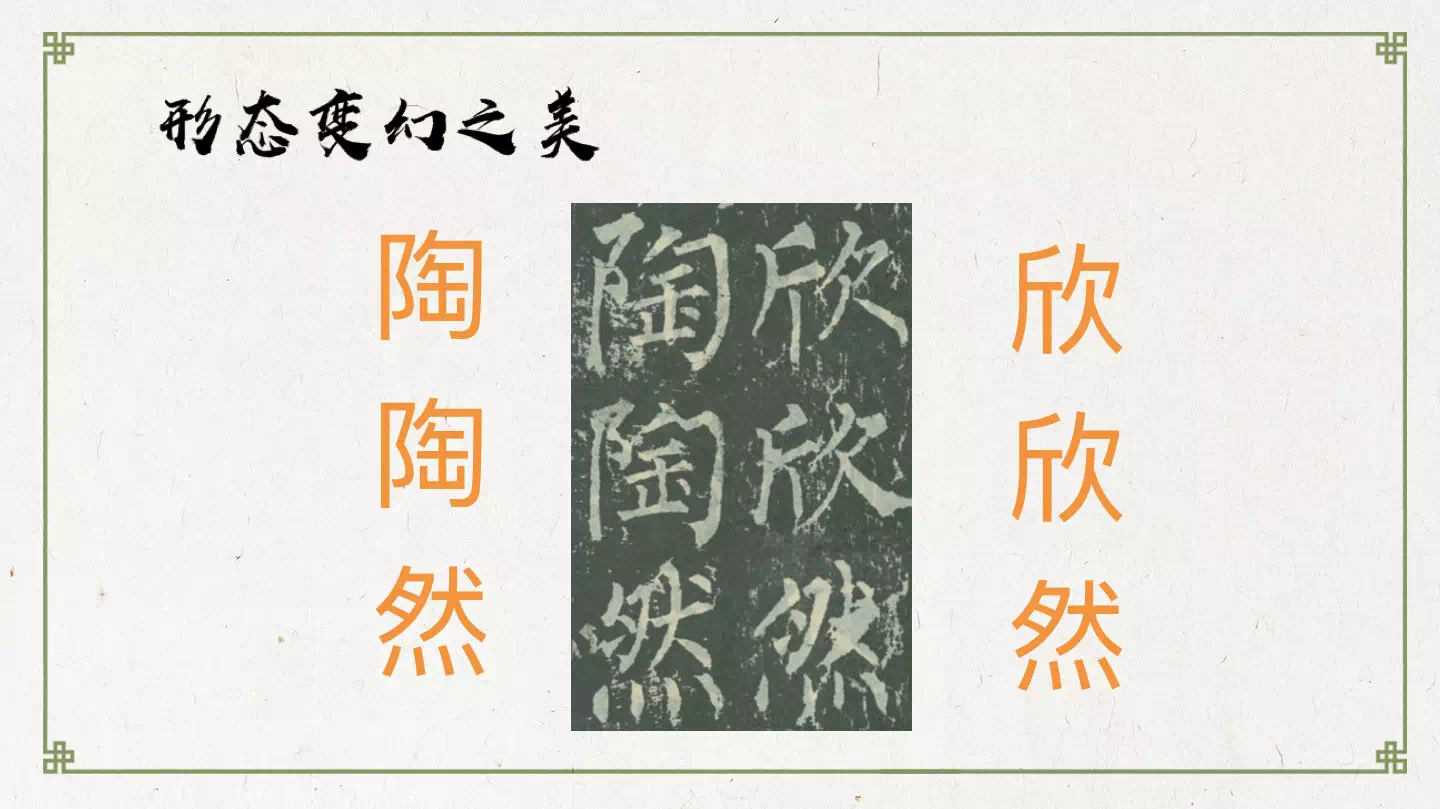 形态变幻之美
陶陶然
陶陶然
欣欣然
欣欣然